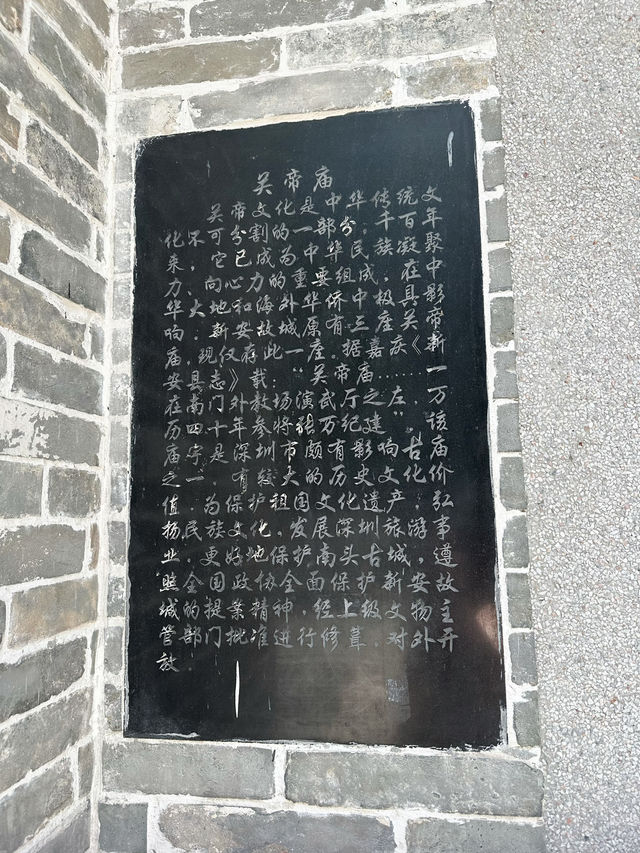 关帝庙
关帝文化是中华传统文
化不可分割的一部分,千百年
来,它已成为中华民族凝聚
力,向心力的重要组成,在中
华大地和海外华侨中极具影
响:新安故城原有三座关帝
庙,现仅存此一座.据嘉庆《新
安县志》载:“关帝庙……一
在南门外教场演武厅之左”.万
历四十年参将张万纪建.该
庙宇是深圳市颇有影响古庙
之一.有较大的历史文化价
值.为保护祖国文化遗产;弘
扬民族文化,发展深圳旅游事
业,更好地保护南头古城,遵
照全国政协全面保护新安故
城的提案精神,经上级文物主
管部门批准进行修葺.对外开
放.